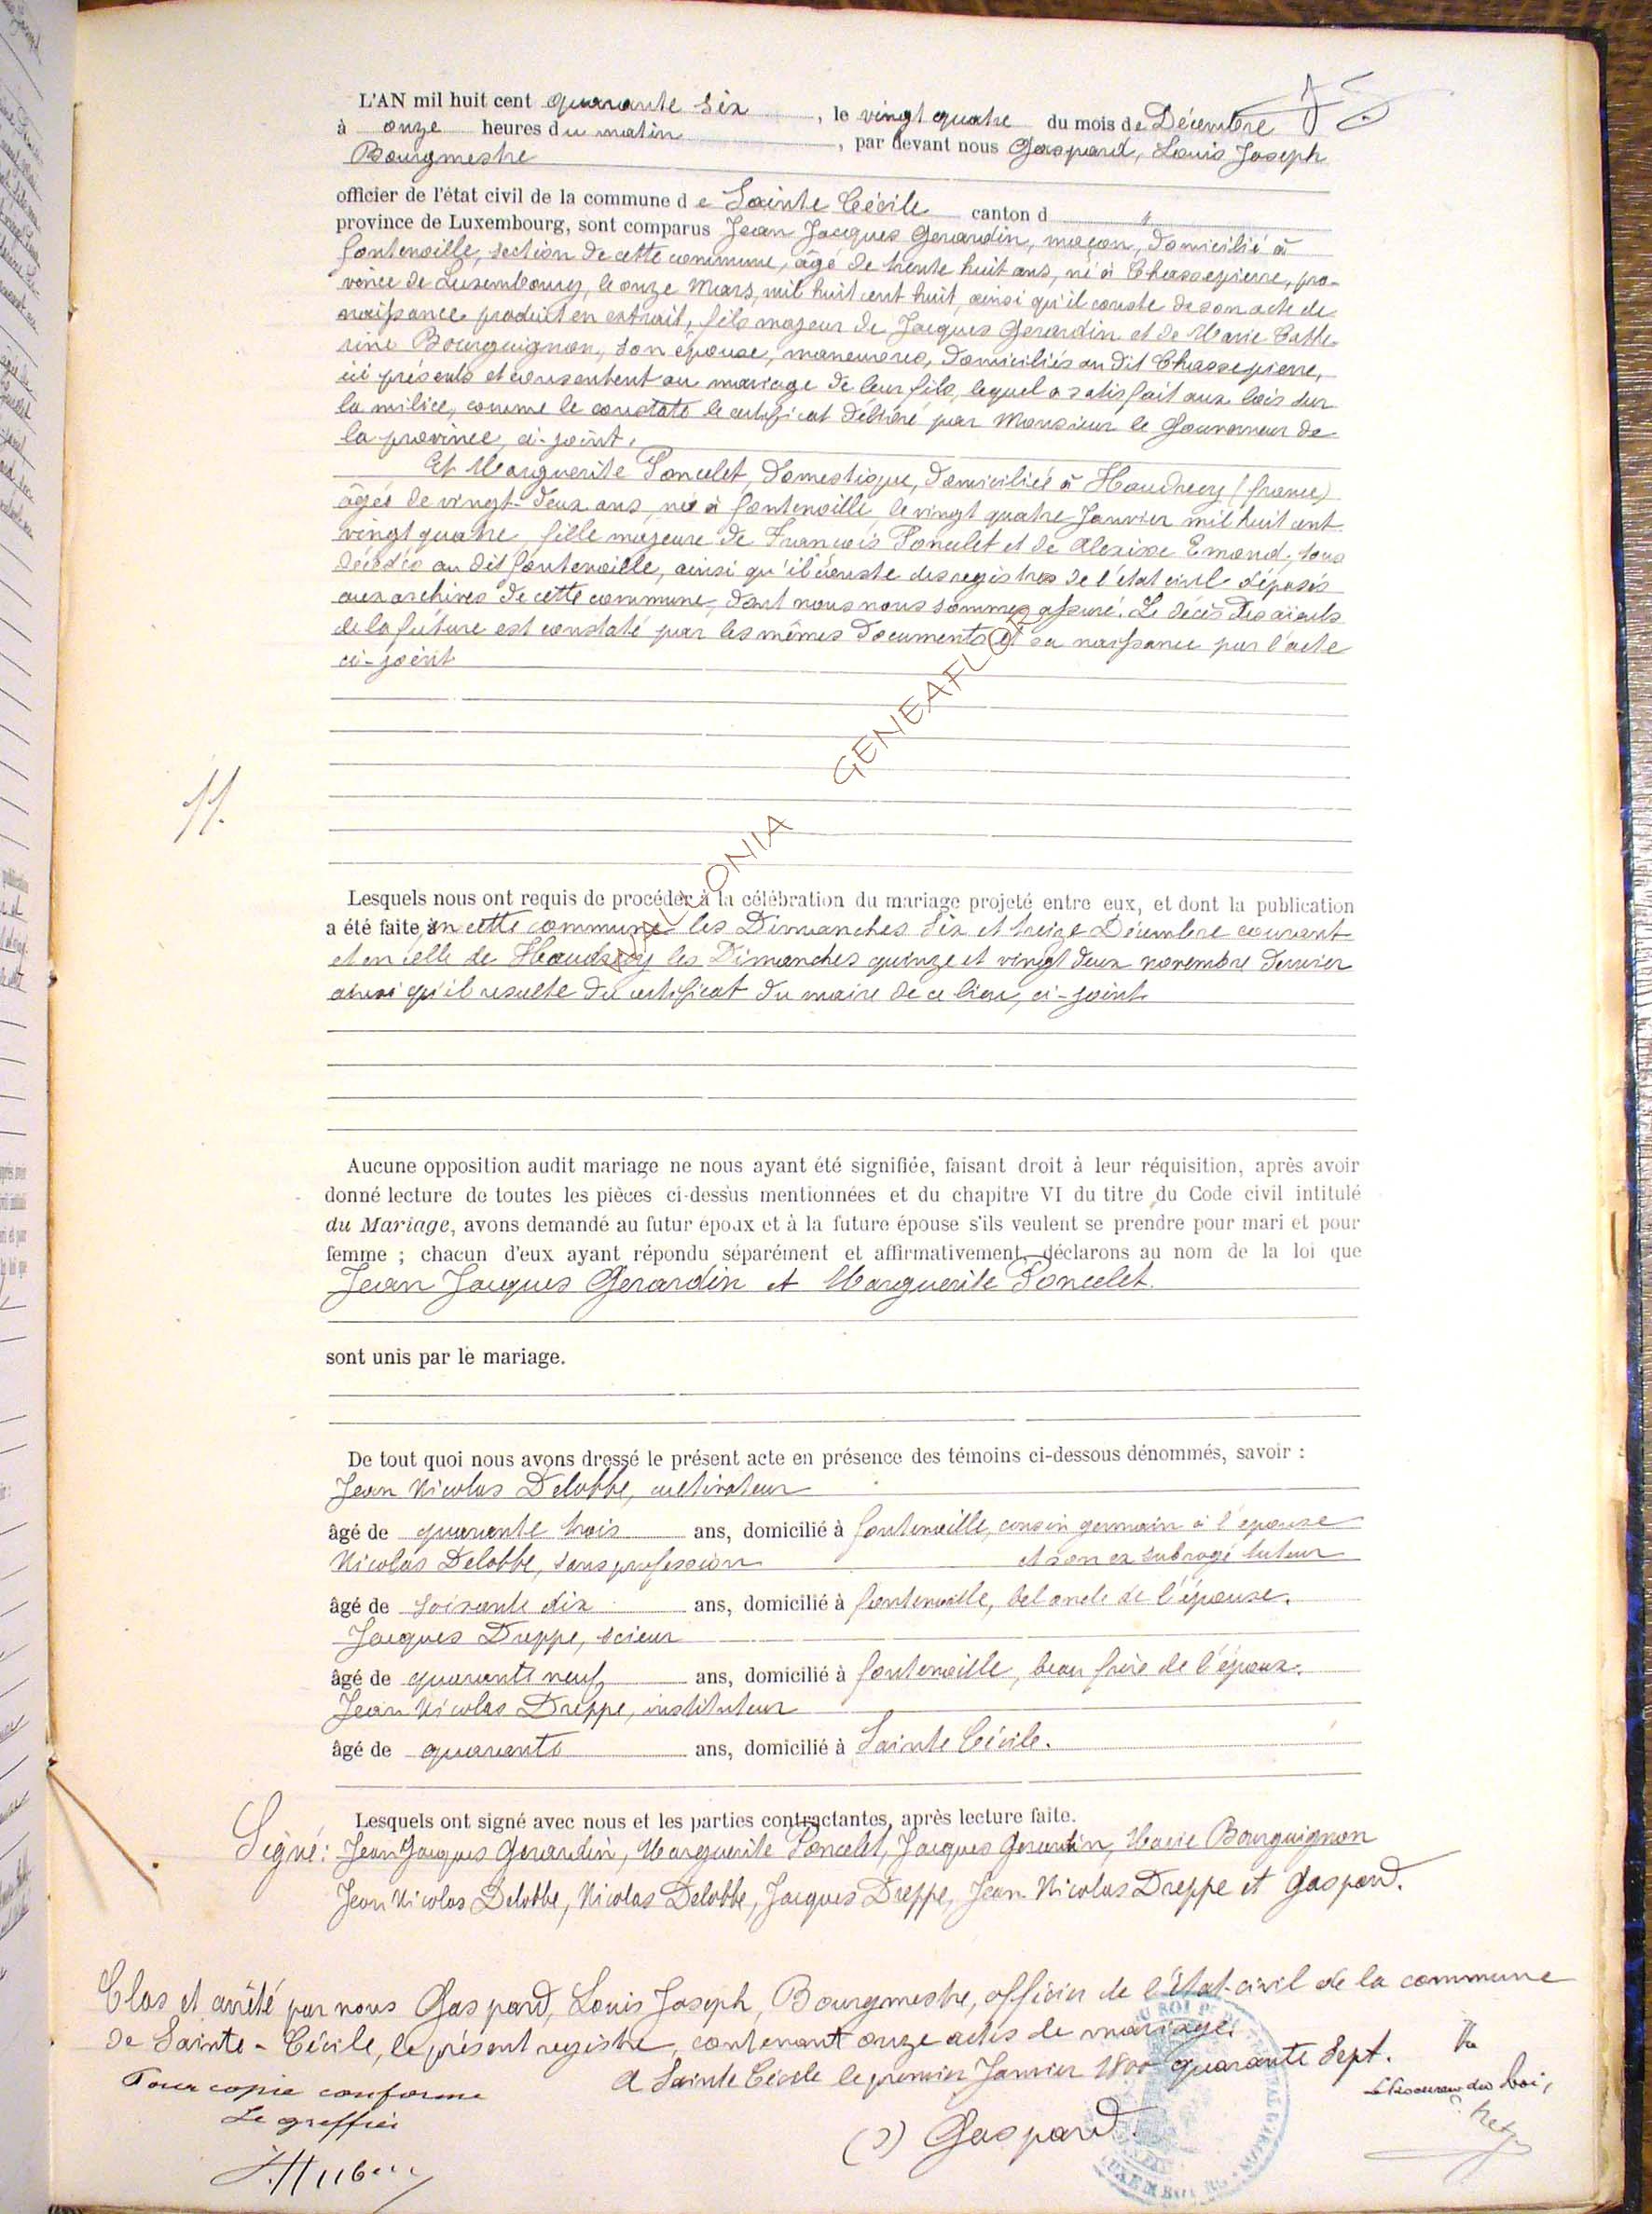 L'AN mil huit cent quarante six, le vingt quatre du mois de Décembre
à onze heures du matin, par devant nous Gaspard, Louis Joseph
Bourgmestre
officier de l'état civil de la commune de Sainte Cécile canton d
province de Luxembourg, sont comparus Jean Jacques Gerardin, maçon, domicilié à
fontenoille, section de cette commune, âgé de trente huit ans, né à Chassepierre, pro-
vince de Luxembourg, le onze Mars, mil huit cent huit, ainsi qu'il conste de son acte de
naissance produit en extrait, fils majeur de Jacques Gerardin et de Marie Cathe-
rine Bourguignon, son épouse, manœuvres, domiciliés au dit Chassepierre,
ici présents et consentent au mariage de leur fils, lequel a satisfait aux lois sur
la milice, comme le constate le certificat délivré par Monsieur le Gouverneur de
la province, ci-joint.
Et Marguerite Poncelet, domestique, domiciliée à Haudrecy (france)
âgée de vingt-deux ans, née à fontenoille, le vingt quatre Janvier mil huit cent
vingt quatre, fille majeure de François Poncelet et de Alexise Emond, tous
décédés au dit fontenoille, ainsi qu'il conste des registres de l'état civil déposés
aux archives de cette commune, dont nous nous sommes assuré. Le décès des aïeuls
de la future est constaté par les mêmes documents et sa naissance par l'acte
ci-joint
WALLONIA GENEAFLOR
11.
Lesquels nous ont requis de procéder à la célébration du mariage projeté entre eux, et dont la publication
a été faite, en cette commune les Dimanches six et treize Décembre courant
et en celle de Haudrecy les Dimanches quinze et vingt deux novembre dernier
ainsi qu'il resulte du certificat du maire de ce lieu, ci-joint
Aucune opposition audit mariage ne nous ayant été signifiée, faisant droit à leur réquisition, après avoir
donné lecture de toutes les pièces ci-dessus mentionnées et du chapitre VI du titre du Code civil intitulé
du Mariage, avons demandé au futur époux et à la future épouse s'ils veulent se prendre pour mari et pour
femme ; chacun d'eux ayant répondu séparément et affirmativement, déclarons au nom de la loi que
Jean Jacques Gerardin et Marguerite Poncelet.
sont unis par le mariage.
De tout quoi nous avons dressé le présent acte en présence des témoins ci-dessous dénommés, savoir :
Jean Nicolas Delobbe, cultivateur
âgé de quarante trois ans, domicilié à fontenoille, cousin germain à l'épouse
Nicolas Delobbe, sans profession et son ex subrogé tuteur
âgé de soixante dix ans, domicilié à fontenoille, bel oncle de l'épouse.
Jacques Dreppe, scieur
âgé de quarante neuf ans, domicilié à fontenoille, beau frère de l'époux.
Jean Nicolas Dreppe, instituteur
âgé de quarante ans, domicilié à Sainte Cécile.
Lesquels ont signé avec nous et les parties contractantes, après lecture faite.
Signé: Jean Jacques Gerardin, Marguerite Poncelet, Jacques Gerardin, Marie Bourguignon
Jean Nicolas Delobbe, Nicolas Delobbe, Jacques Dreppe, Jean Nicolas Dreppe et Gaspard.
Clos et arrêté par nous Gaspard, Louis Joseph, Bourgmestre, officier de l'état-civil de la commune
de Sainte-Cécile, le présent registre, contenant onze actes de mariage.
A Sainte Cécile le premier Janvier 1800 quarante Sept.
Pour copie conforme
Le greffier
(s) Gaspard.